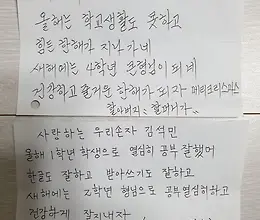 올해는 학교생활도 못하고
힘든 한해가 지나가네
새해에는 4학년 큰형님이 되네
건강하고 즐거운 한해가 되자 메리크리스마스
할아버지 할머니가
사랑하는 우리손자 김석민
올해 1학년 학생으로 열심히 공부 잘했어
한글도 잘하고 받아쓰기도 잘하고
새해에는 2학년 형님으로 공부열심히하고
건강하게 잘지내자